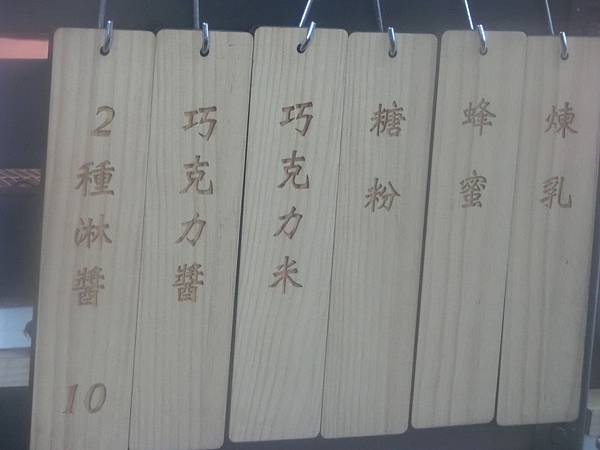 2種淋醬 10
巧克力醬
巧克力米
糖粉
蜂蜜
煉乳